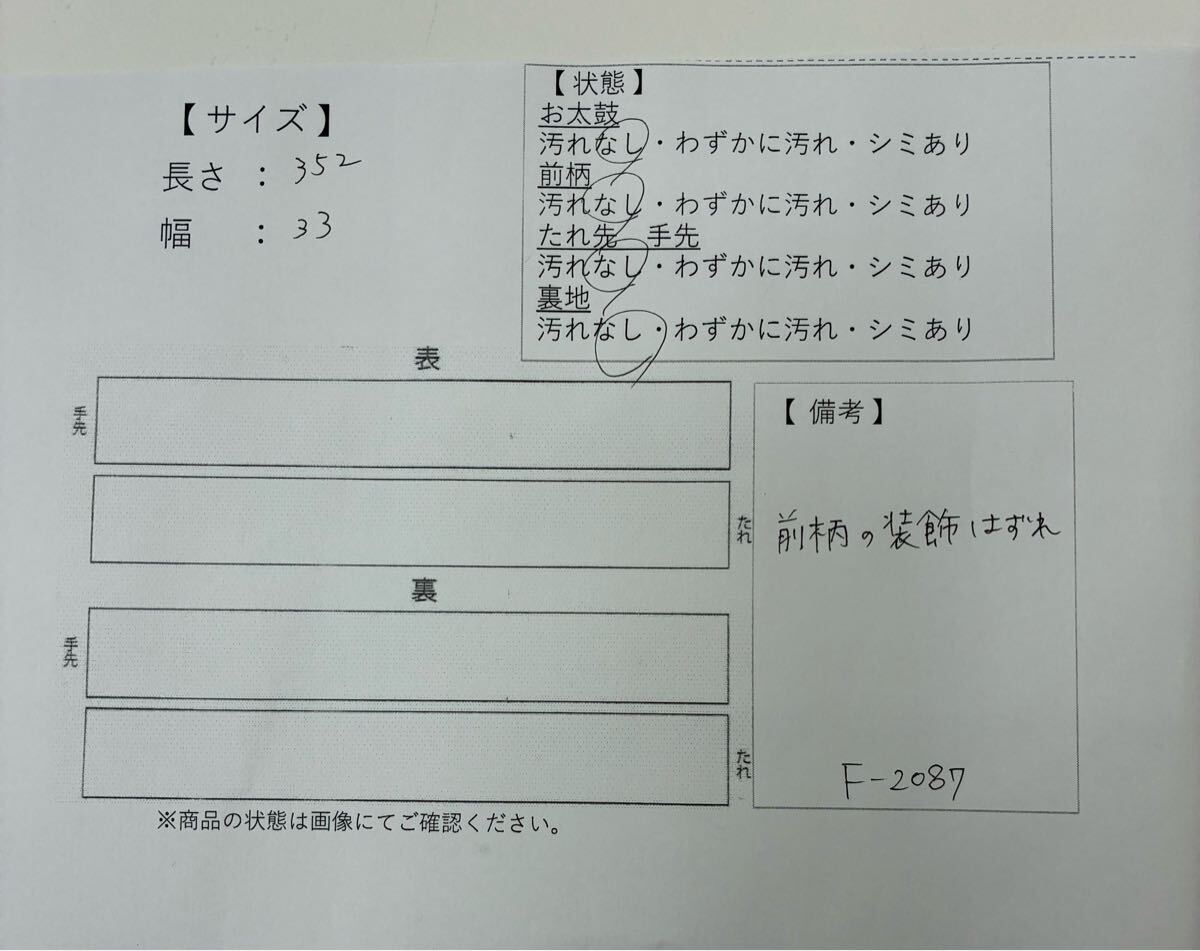 【サイズ】
長さ ： 352
幅 ： 33
【状態】
お太鼓
汚れなし・わずかに汚れ・シミあり
前柄
汚れなし・わずかに汚れ・シミあり
たれ先 手先
汚れなし・わずかに汚れ・シミあり
裏地
汚れなし・わずかに汚れ・シミあり
表
手先
たれ
裏
手先
たれ
※商品の状態は画像にてご確認ください。
【備考】
前柄の装飾はずれ
F-2087